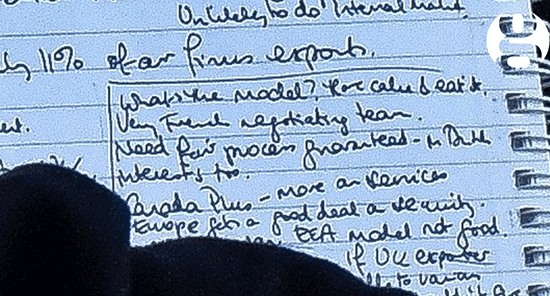 Unlikely to do internal market.
11% of our firms exports.
What's the model? Have cake & eat it.
Very French negotiating team.
Need fair process guaranteed - in British
interests too.
Canada Plus - more on services
Europe gets a good deal on security.
EEA model not good.
If UK exporter